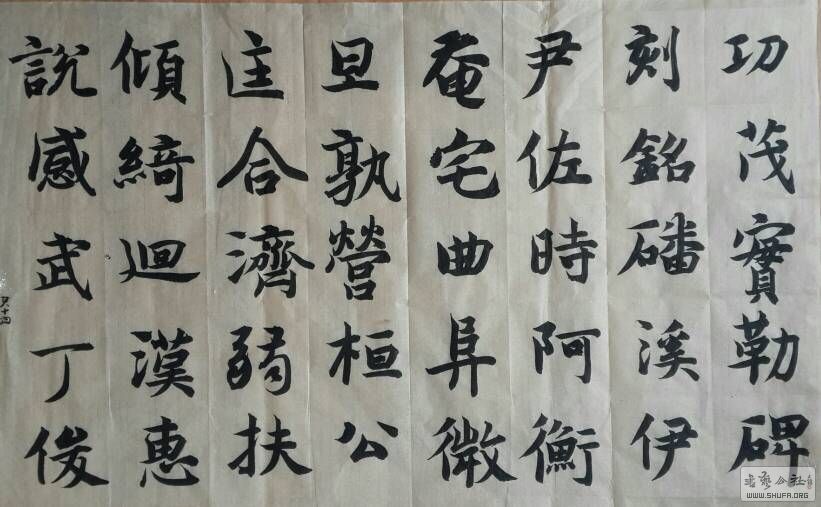 功茂實勒碑
刻銘磻溪伊
尹佐時阿衡
奄宅曲阜微
旦孰營桓公
匡合濟弱扶
傾綺迴漢惠
說感武丁俊
WWW.SHUFA.ORG